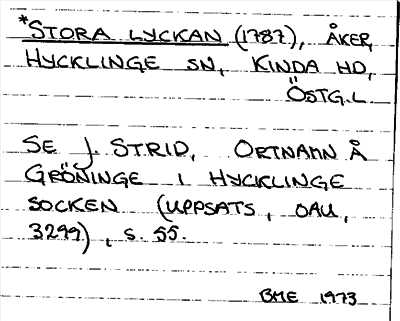 *STORA LYCKAN (1787), ÅKER,
HYCKLINGE SN, KINDA HD,
ÖSTG.L
SE J. STRID, ORTNAMN Å
GRÖNINGE I HYCKLINGE
SOCKEN (UPPSATS, OAU,
3299), s. 55.
BME 1973